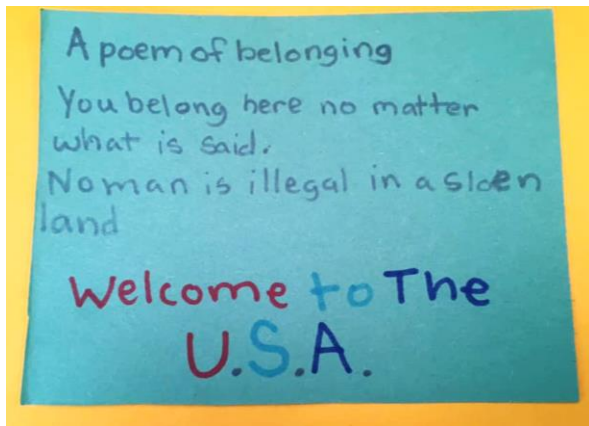 A poem of belonging
You belong here no matter
what is said.
No man is illegal in a sloen
land
Welcome to The
U.S.A.